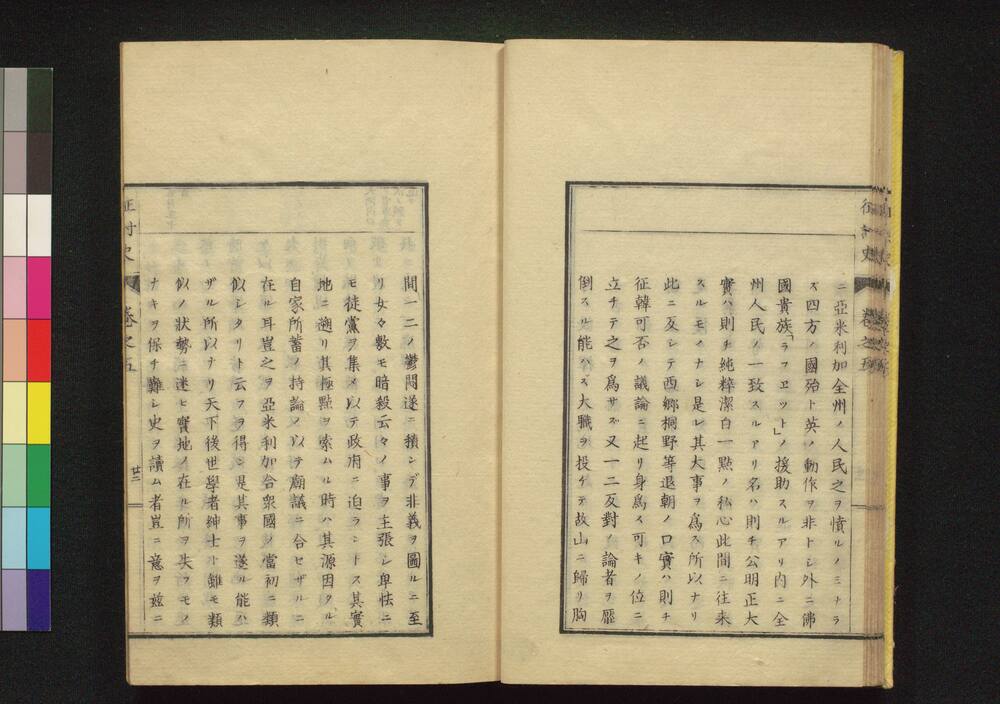 ニ亞米利加全州ノ人民之ヲ憤ルノミナラ
ズ四方ノ國殆ト英ノ動作ヲ非トシ外ニ佛
國貴族「ラフエット」ノ援助スルアリ内ニ全
州人民ノ一致スルアリ名ハ則チ公明正大
實ハ則チ純粹潔白一點ノ私心此間ニ往来
スルモノナシ是レ其大事ヲ爲ス所以ナリ
此ニ反シテ西郷桐野等退朝ノ口實ハ則チ
征韓可否ノ議論ニ起リ身爲ス可キノ位ニ
立チテ之ヲ爲サズ又一二反對ノ論者ヲ壓
倒スル能ハズ大職ヲ投ケテ故山ニ歸リ胸
間一二ノ鬱悶遂ニ積ンデ非義ヲ圖ルニ至
リ女々數モ暗殺云々ノ事ヲ主張シ卑怯ニ
モ徒黨ヲ集メ以テ政府ニ迫ラントス其實
地ニ遡リ其極點ヲ索ムル時ハ其源因タル
自家所蓄ノ持論ノ以テ廟議ニ合セザルニ
在ル耳豈之ヲ亞米利加合衆國ノ當初ニ類
似シタリト云フヲ得ン是其事ヲ遂ル能ハ
ザル所以ナリ天下後世學者紳士ト雖モ類
似ノ狀勢ニ迷ヒ實地ノ在ル所ヲ失フモノ
ナキヲ保チ難シ史ヲ讀ム者豈ニ意ヲ玆ニ
征討史 卷之五 廿二